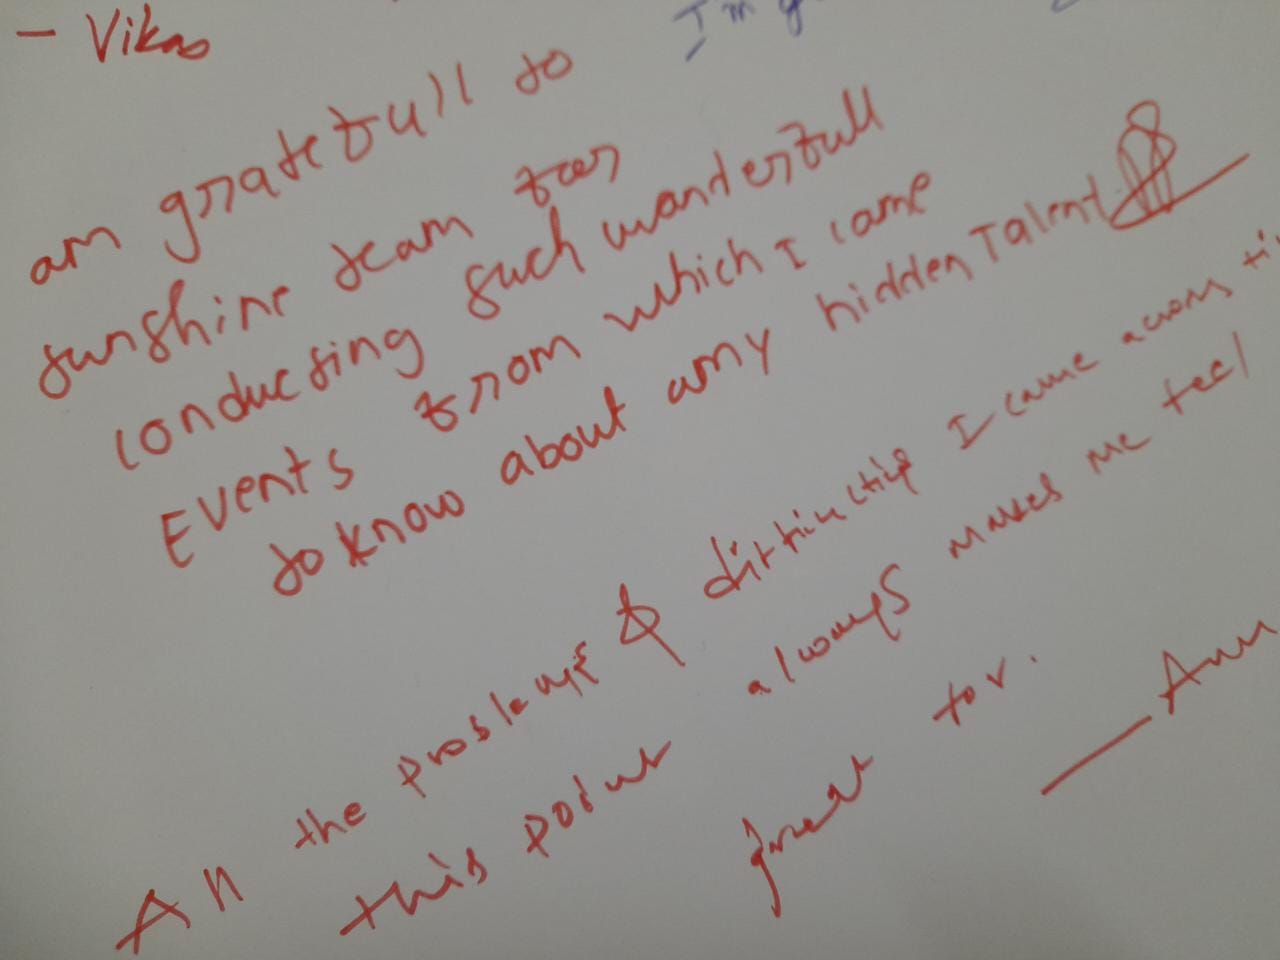 - Vikas
Im
am gratefull to
sunshine team for
conducting such wanderfull
Events from which I came
to know about amy hidden Talent
All the problems & distinctive I came across ti
this point always makes me feel
great for.
— Anu